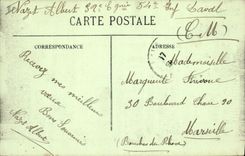 Nazet Albert 32e 6 54e Laval
CARTE POSTALE
(C.M)
CORRESPONDANCE
ADRESSE
Recevez mes meilleurs
vœux
Bon Souvenir
Nazet Albert
Mademoiselle
Marguerite
30 Boulevard 30
Marseille
(Bouches du Rhône)